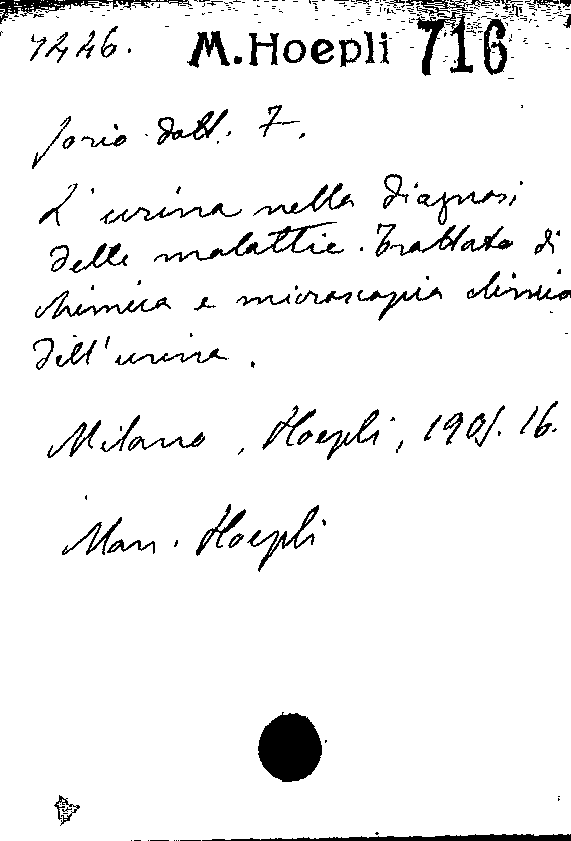 M. Hoepli 716
Jorio dott.
L'urina nella diagnosi
delle malattie. Trattato di
chimica e microscopia clinica
dell'urina.
Milano, Hoepli, 1901. 16.
Man. Hoepli